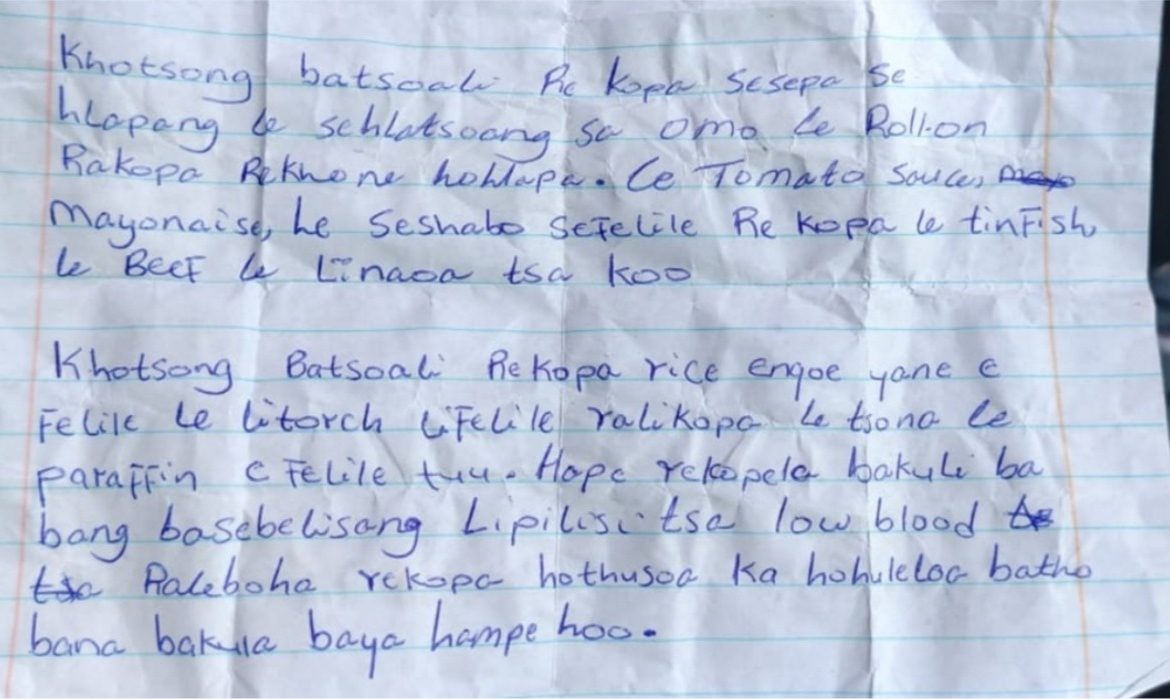 Khotsong batsoali Re kopa Sesepa Se
hlapang le sehlatsoang sa omo le Roll-on
Rakopa Rekhone hohlapa. Le Tomato Sauce,
Mayonaise, Le Seshabo SeFelile Re kopa le tinFish,
le BeeF le Linaoa tsa koo
Khotsong Batsoali Rekopa rice engoe yane e
Felile le litorch liFelile ralikopa le tsona le
paraFFin e Felile tuu. Hape rekopela bakuli ba
bang basebelisang Lipilisi tsa low blood
tsa Raleboha rekopa hothusoa ka hohuleloa batho
bana bakula baya hampe hoo.